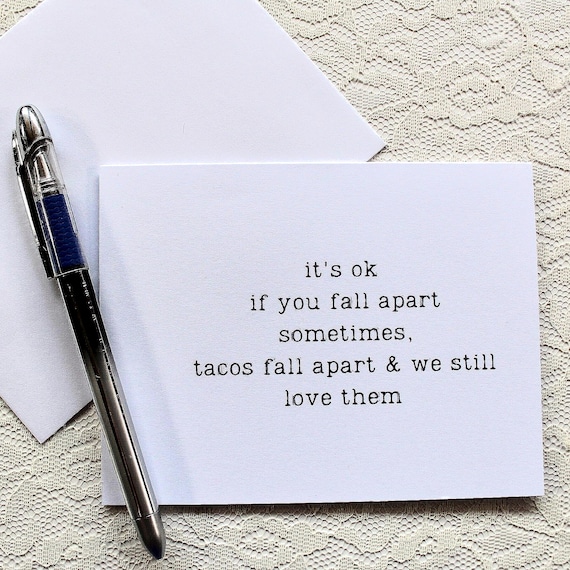 it's ok
if you fall apart
sometimes,
tacos fall apart & we still
love them